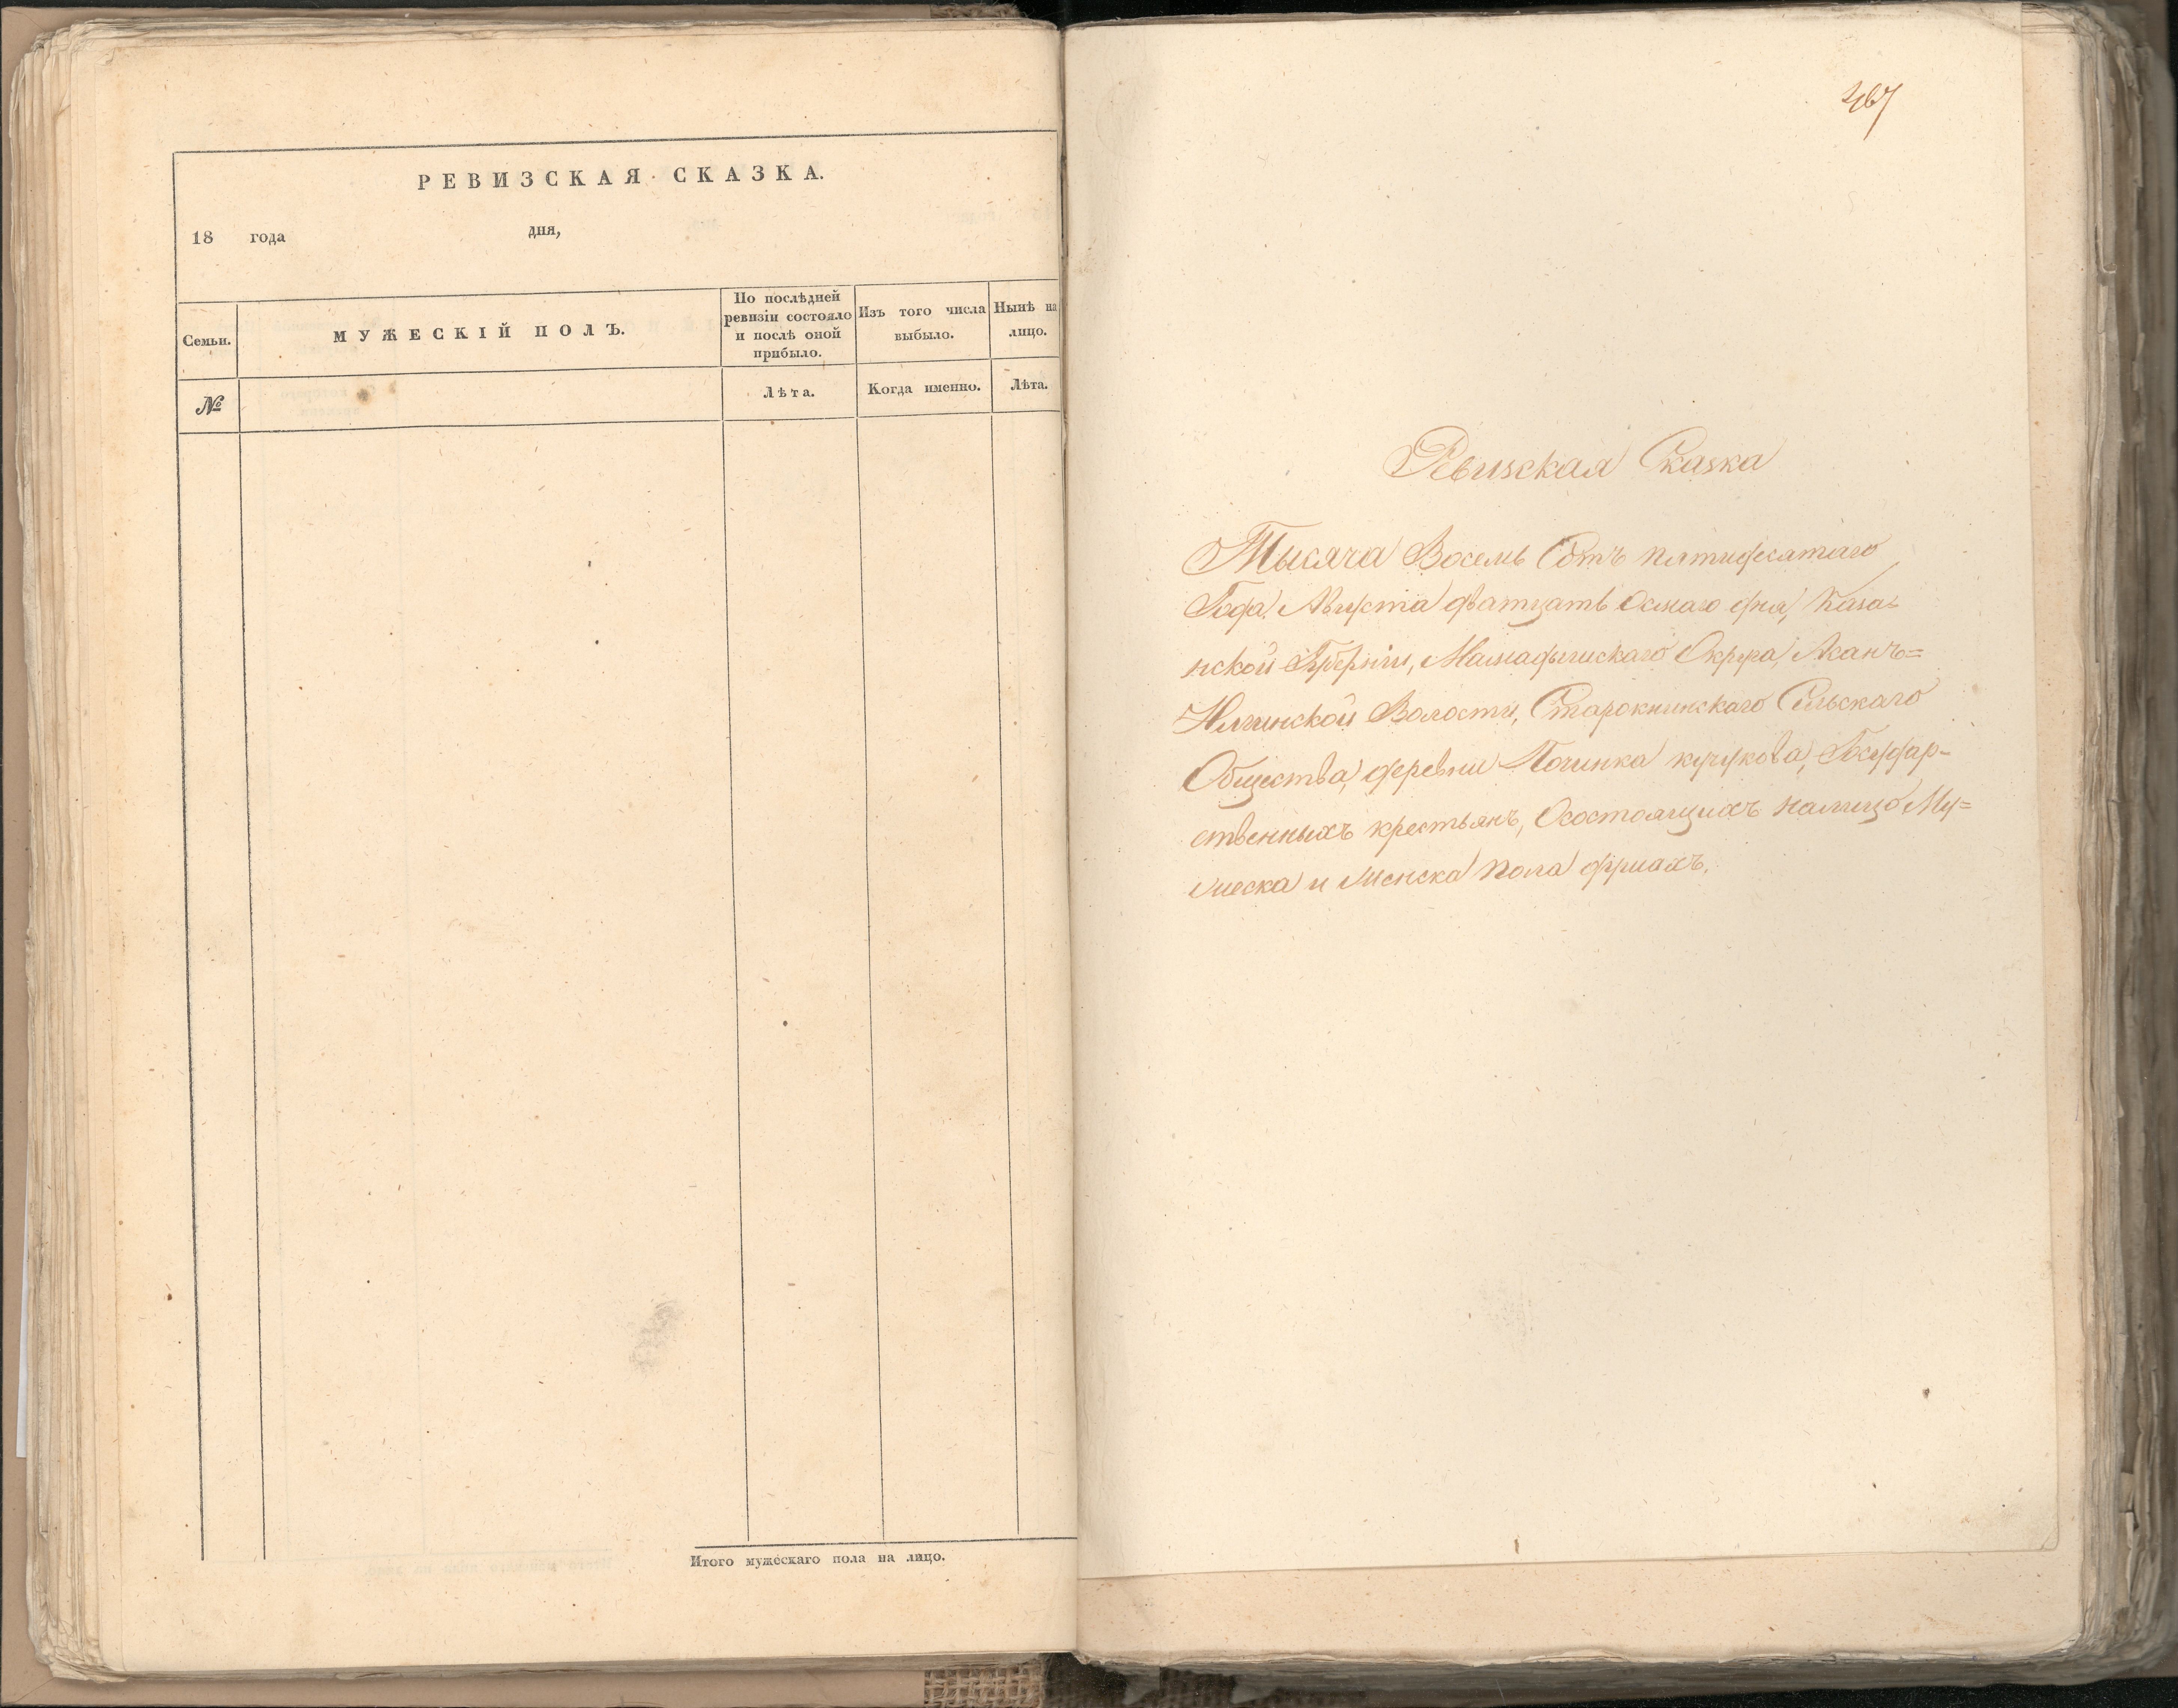 РЕВИЗСКАЯ СКАЗКА.
18 года дня,
Семьи.
МУЖЕСКІЙ ПОЛЪ.
По послѣдней
ревизіи состояло
и послѣ оной
прибыло.
Изъ того числа
выбыло.
Нынѣ на
лицо.
№
Лѣта.
Когда именно.
Лѣта.
Итого мужескаго пола на лицо.
467
Ревизская Сказка
Тысяча Восемь Сотъ пятидесятаго
Года, Августа дватцать Осмаго дня, Каза-
нской Губерніи, Мамадышскаго Округа, Асанъ=
Елгинской Волости, Старокнинскаго Сельскаго
Общества, деревни Починка кучукова, Государ-
ственныхъ крестьянъ, Осостоящихъ налицо Му=
жеска и Женска пола душахъ.